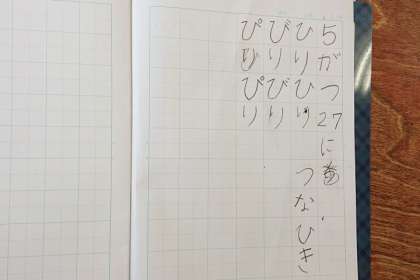 5がつ27に
ひりひり つなひき
びりびり
ぴりぴり